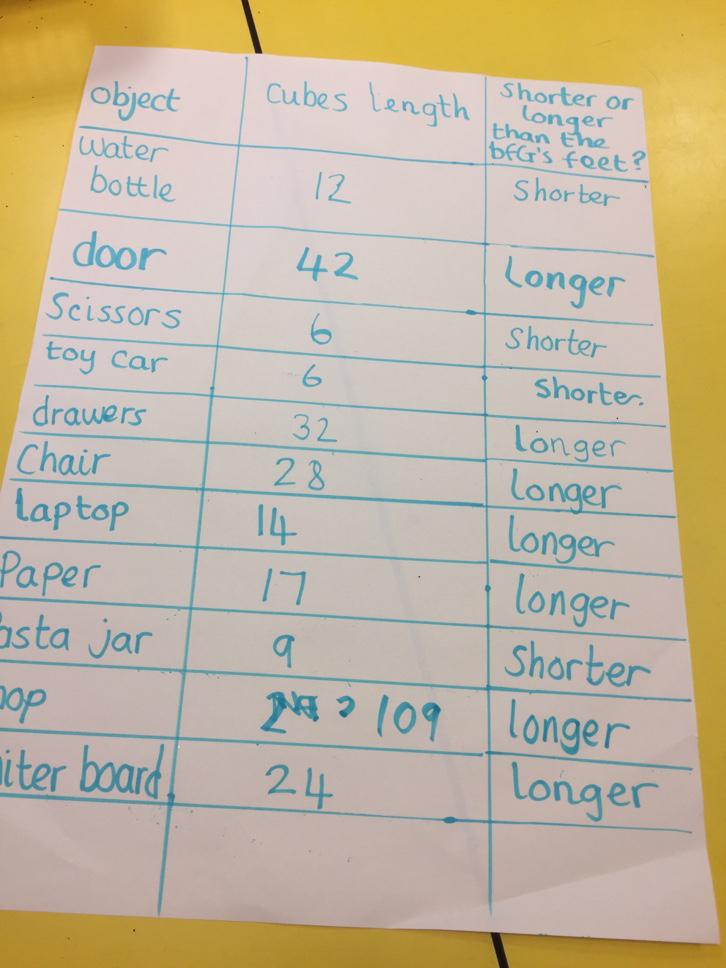 object cubes length shorter or
longer
than the
bfG's feet?
water
bottle 12 Shorter
door 42 Longer
Scissors 6 Shorter
toy car 6 Shorter.
drawers 32 longer
Chair 28 longer
Laptop 14 longer
Paper 17 longer
asta jar 9 Shorter
109 longer
iter board 24 longer